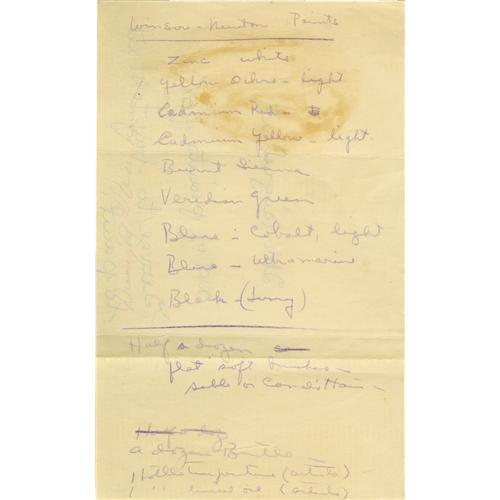 Winsor - Newton Paints
Zinc white
Yellow Ochre - light
Cadmium Red -
Cadmium Yellow - light
Burnt Sienna
Veridian Green
Blue - Cobalt, light
Blue - Ultramarine
Black - (Ivory)
Half a dozen
flat soft Brushes -
sable or Camel's Hair -
Half a doz
a dozen Bristle -
1 bottle turpentine (artists)
1 " linseed oil (artists)